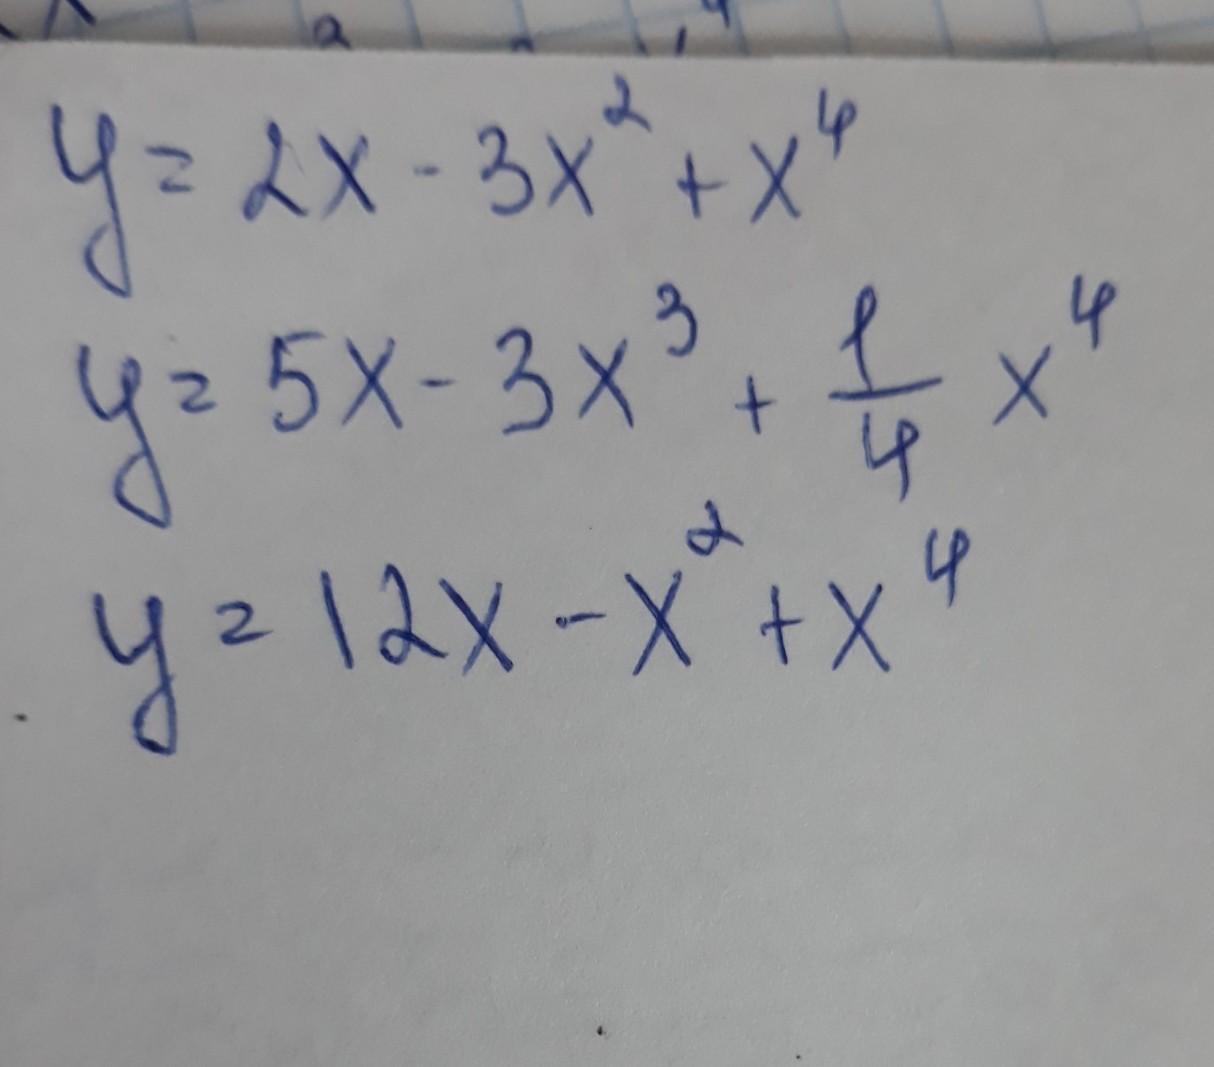 y = 2x - 3x² + x⁴
y = 5x - 3x³ + 1/4 x⁴
y = 12x - x² + x⁴